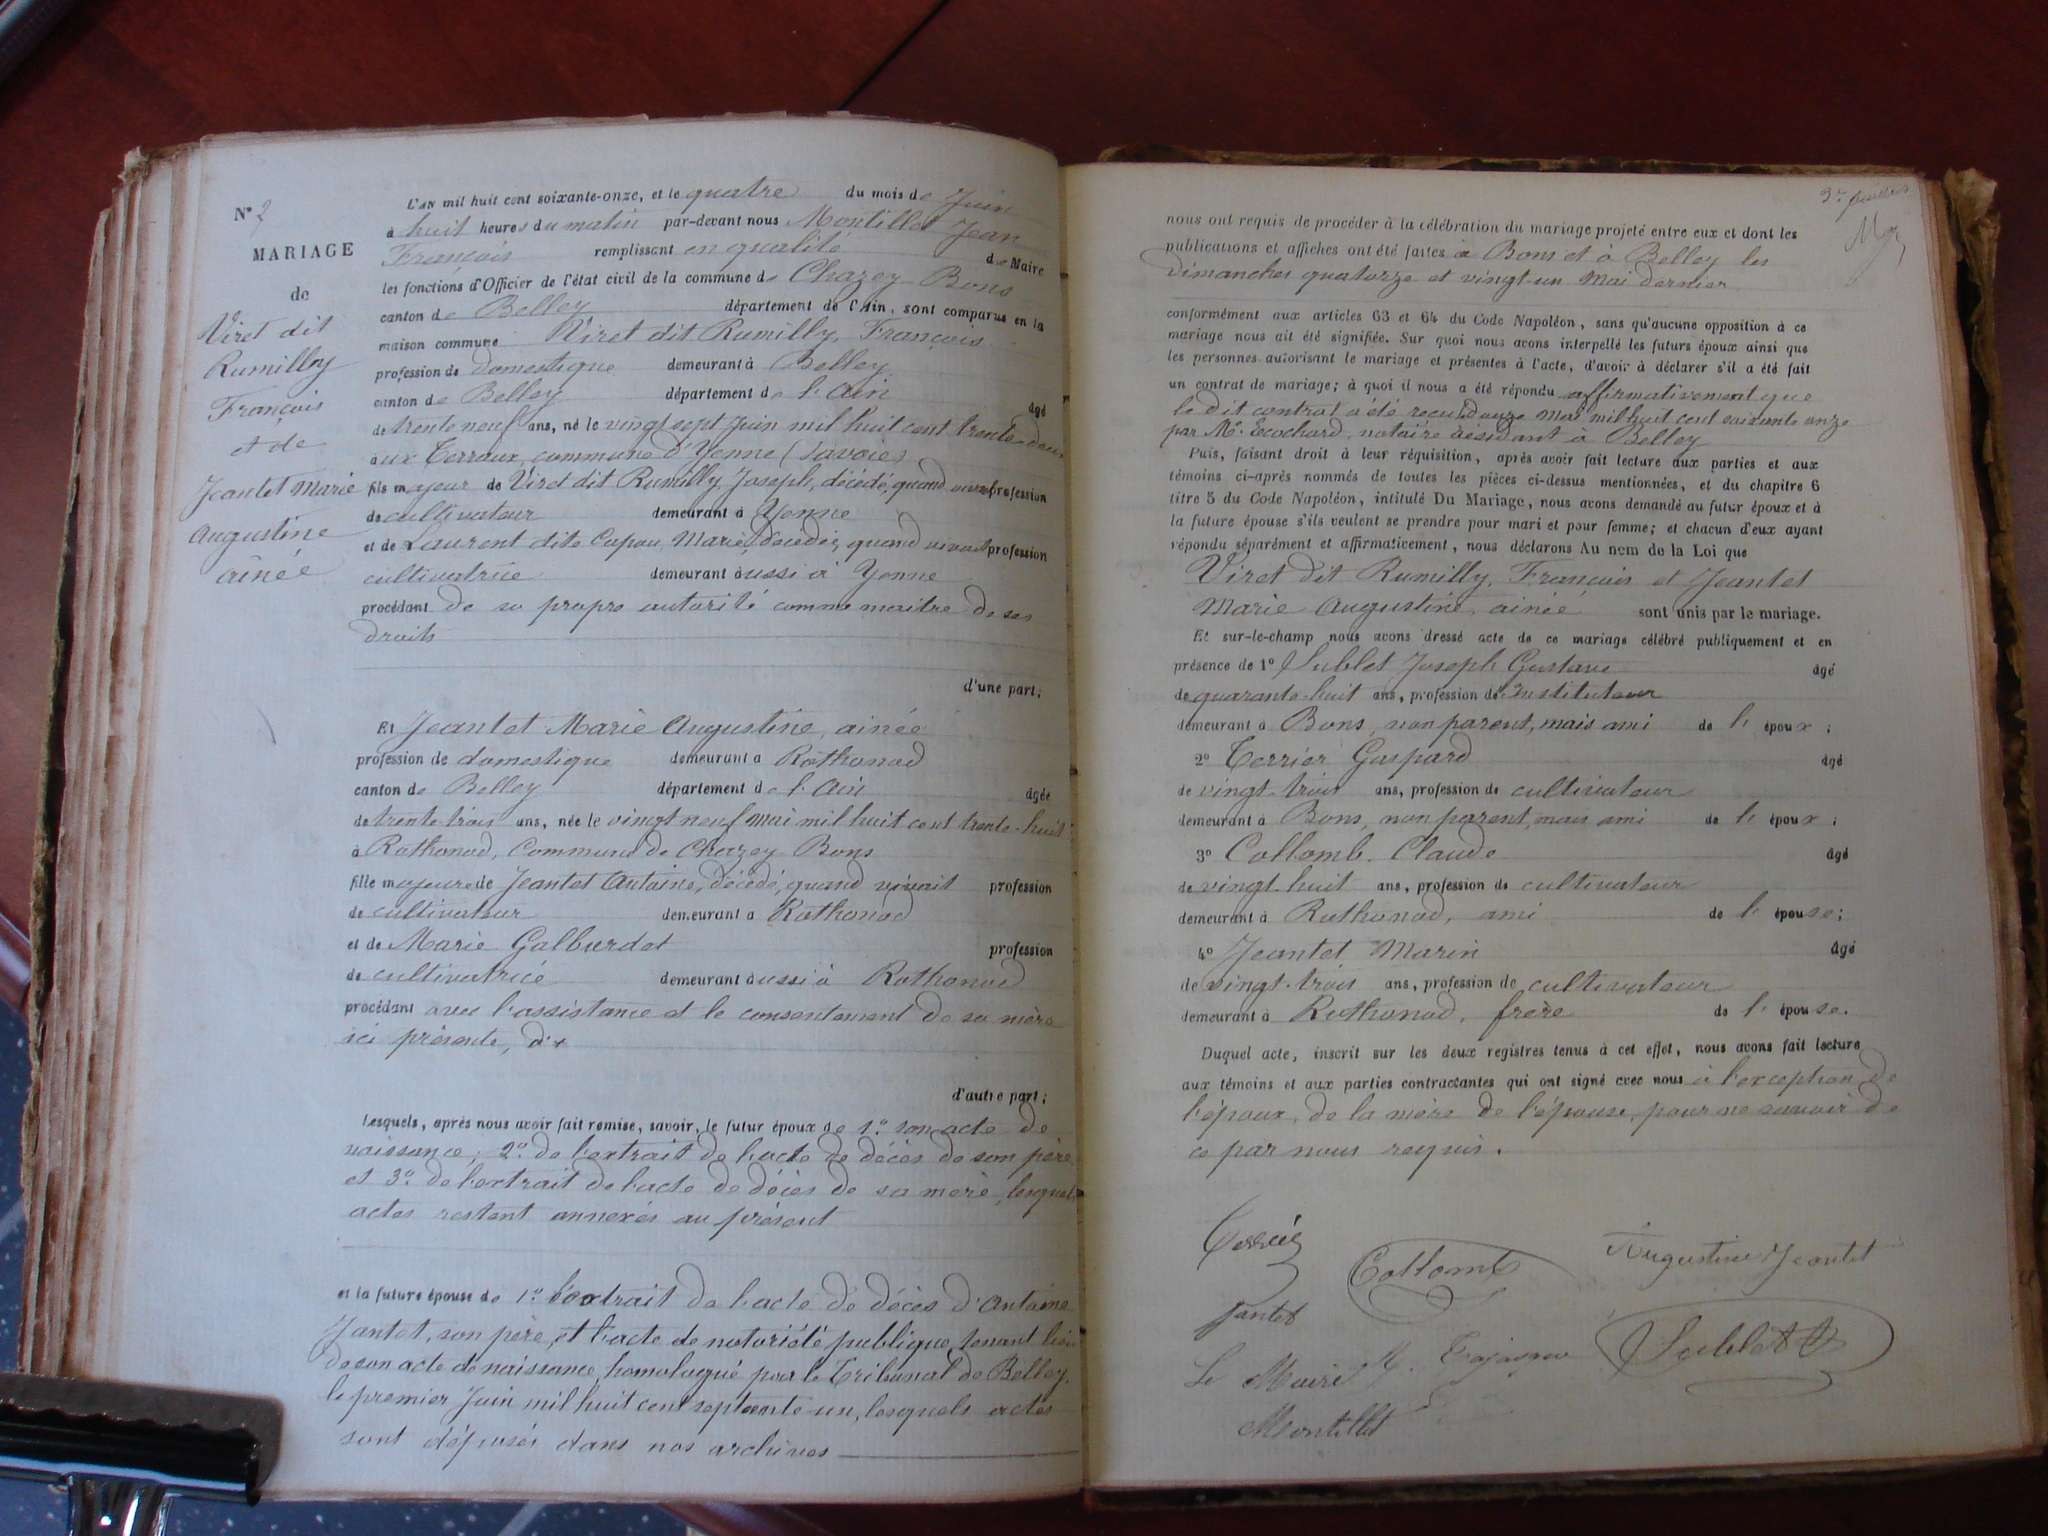 N° 2
MARIAGE
de
Viret dit
Rumilly
François
et de
Jeantet Marie
Augustine
ainée
L'AN mil huit cent soixante-onze, et le quatre du mois de Juin
à huit heures du matin par-devant nous Montillet Jean
François remplissant en qualité de Maire
les fonctions d'Officier de l'état civil de la commune de Chazey-Bons
canton de Belley département de l'Ain, sont comparus en la
maison commune Viret dit Rumilly, François
profession de domestique demeurant à Belley
canton de Belley département de l'Ain âgé
de trente neuf ans, né le vingt sept Juin mil huit cent trente-deux
aux Terreaux, commune d'Yenne (Savoie)
fils majeur de Viret dit Rumilly Joseph, décédé, quand vivait profession
de cultivateur demeurant à Yenne
et de Laurent dite Marie, décédée, quand vivait profession
cultivatrice demeurant aussi à Yenne
procédant de sa propre autorité comme maitre de ses
droits
d'une part;
Et Jeantet Marie Augustine, ainée
profession de domestique demeurant à Rothonod
canton de Belley département de l'Ain âgée
de trente-trois ans, née le vingt neuf Mai mil huit cent trente-huit
à Rothonod, Commune de Chazey-Bons
fille majeure de Jeantet Antoine, décédé, quand vivait profession
de cultivateur demeurant à Rothonod
et de Marie Galburdet profession
de cultivatrice demeurant aussi à Rothonod
procédant avec l'assistance et le consentement de sa mère
ici présente, d'+
d'autre part;
Lesquels, après nous avoir fait remise, savoir, le futur époux de 1° son acte de
naissance; 2° de l'extrait de l'acte de décès de son père
et 3° de l'extrait de l'acte de décès de sa mère, lesquels
actes restent annexés au présent
et la future épouse de 1° l'extrait de l'acte de décès d'Antoine
Jantet, son père, et l'acte de notoriété publique, tenant lieu
de son acte de naissance, homologué par le Tribunal de Belley,
le premier Juin mil huit cent septante-un, lesquels actes
sont déposés dans nos archives
nous ont requis de procéder à la célébration du mariage projeté entre eux et dont les
publications et affiches ont été faites à Bons et à Belley les
dimanches quatorze et vingt-un Mai dernier
conformément aux articles 63 et 64 du Code Napoléon, sans qu'aucune opposition à ce
mariage nous ait été signifiée. Sur quoi nous avons interpellé les futurs époux ainsi que
les personnes autorisant le mariage et présentes à l'acte, d'avoir à déclarer s'il a été fait
un contrat de mariage; à quoi il nous a été répondu affirmativement que
le dit contrat a été recu le douze Mai mil huit cent soixante onze
par Me. Tecochard, notaire résidant à Belley
Puis, faisant droit à leur réquisition, après avoir fait lecture aux parties et aux
témoins ci-après nommés de toutes les pièces ci-dessus mentionnées, et du chapitre 6
titre 5 du Code Napoléon, intitulé Du Mariage, nous avons demandé au futur époux et à
la future épouse s'ils veulent se prendre pour mari et pour femme; et chacun d'eux ayant
répondu séparément et affirmativement, nous déclarons Au nom de la Loi que
Viret dit Rumilly, François et Jeantet
Marie Augustine, ainée sont unis par le mariage.
Et sur-le-champ nous avons dressé acte de ce mariage célébré publiquement et en
présence de 1° Sublet Joseph Gustave âgé
de quarante-huit ans, profession de Instituteur
demeurant à Bons, non parent, mais ami de l'époux;
2° Terrier Gaspard âgé
de vingt-trois ans, profession de cultivateur
demeurant à Bons, non parent, mais ami de l'époux;
3° Collomb Claude âgé
de vingt-huit ans, profession de cultivateur
demeurant à Rothonod, ami de l'épouse;
4° Jeantet Marin âgé
de vingt-trois ans, profession de cultivateur
demeurant à Rothonod, frère de l'épouse.
Duquel acte, inscrit sur les deux registres tenus à cet effet, nous avons fait lecture
aux témoins et aux parties contractantes qui ont signé avec nous à l'exception de
l'époux, de la mère de l'épouse, pour ne savoir de
ce par nous requis.
Terrier
Collomb
Augustine Jeantet
Jantet
Sublet
Le Maire
Montillet